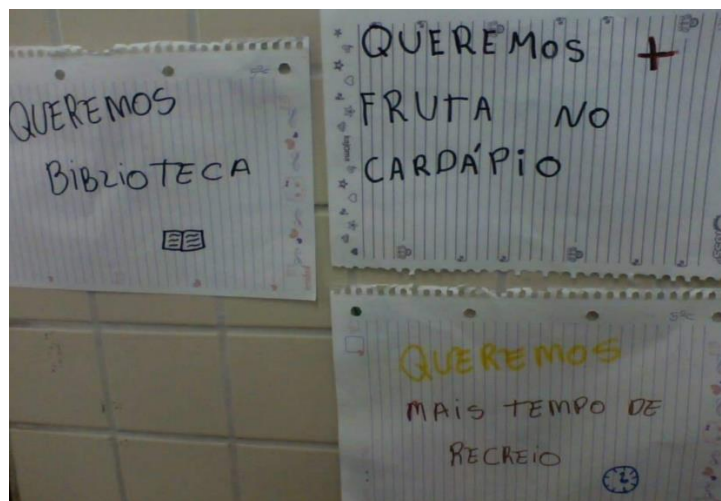 QUEREMOS
BIBLIOTECA
QUEREMOS +
FRUTA NO
CARDÁPIO
QUEREMOS
MAIS TEMPO DE
RECREIO